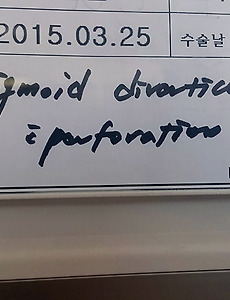 2015.03.25 수술날
gmoid divertic
c perforation